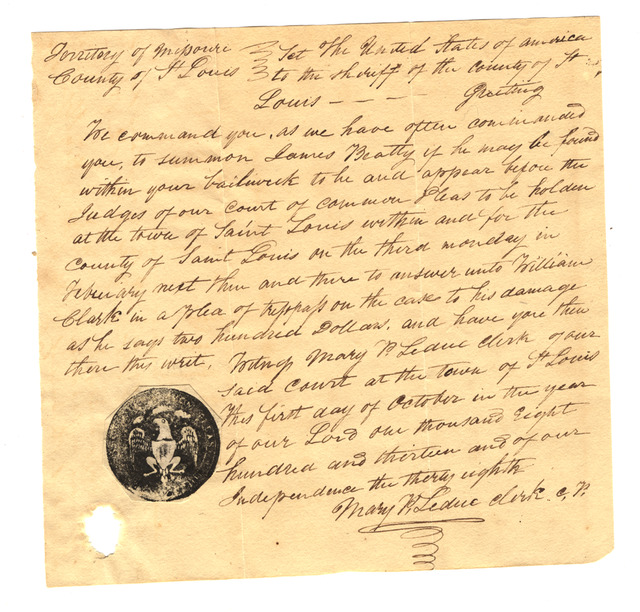 Territory of Missoure } Sct The United States of america
County of St Louis } to the sheriff of the county of St
Louis - - - - Greeting
We command you, as we have often commanded
you, to summon James Beatty if he may be found
within your bailiwick to be and appear before the
Judges of our court of common Pleas to be holden
at the town of Saint Louis within and for the
county of Saint Louis on the third monday in
February next then and there to answer unto William
Clark in a plea of trespass on the case to his damage
as he says two hundred Dollars. and have you then
there this writ. Witness Mary P. Leduc clerk of our
said court at the town of St Louis
this first day of October in the year
of our Lord one thousand Eight
hundred and thirteen and of our
Independence the thirty eighth
Mary P. Leduc clerk. c. P.